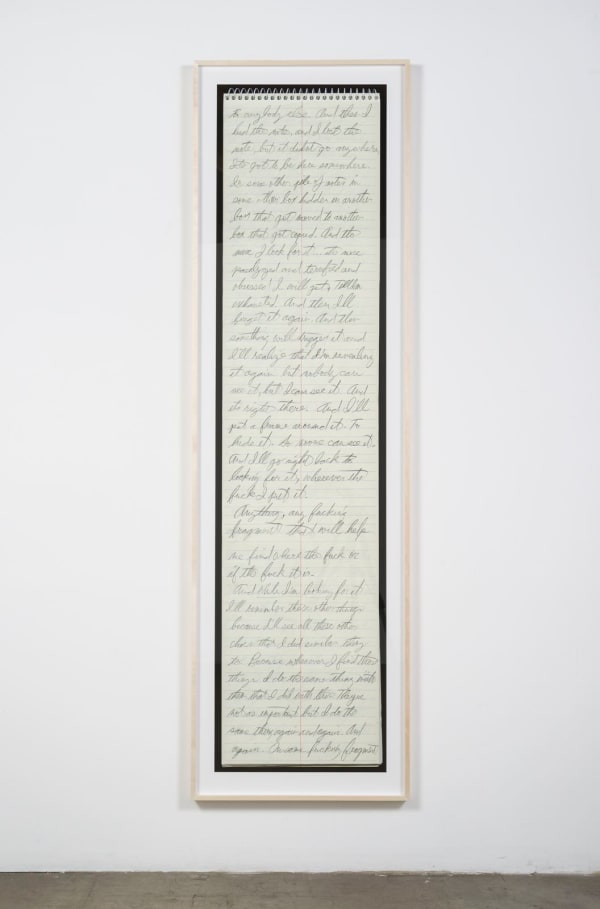 to anybody else. And then I
had the note, and I lost the
note, but it didn't go anywhere
It's got to be here somewhere.
In some other pile of notes in
some other box hidden in another
box that got moved to another
box that got  And the
more I look for it the more
paralyzed and terrified and
obsessed I will get, Till I'm
exhausted. And then I'll
forget it again. And then
something will trigger it and
I'll realize that I'm revealing
it again but nobody can
see it, but I can see it. And
its right there. And I'll
put a frame around it. To
hide it. So no one can see it.
And I'll go right back to
looking for it, wherever the
fuck I put it.
Anything, any fucking
fragment that will help
me find where the fuck
it the fuck it is.
And while I'm looking for it
I'll remember these other things
because I'll see all these other
that I did similar things
to. Because whenever I find these
things I do the same thing with
them that I did with this. They're
not as important but I do the
same thing again and again. And
again. On some fucking fragment